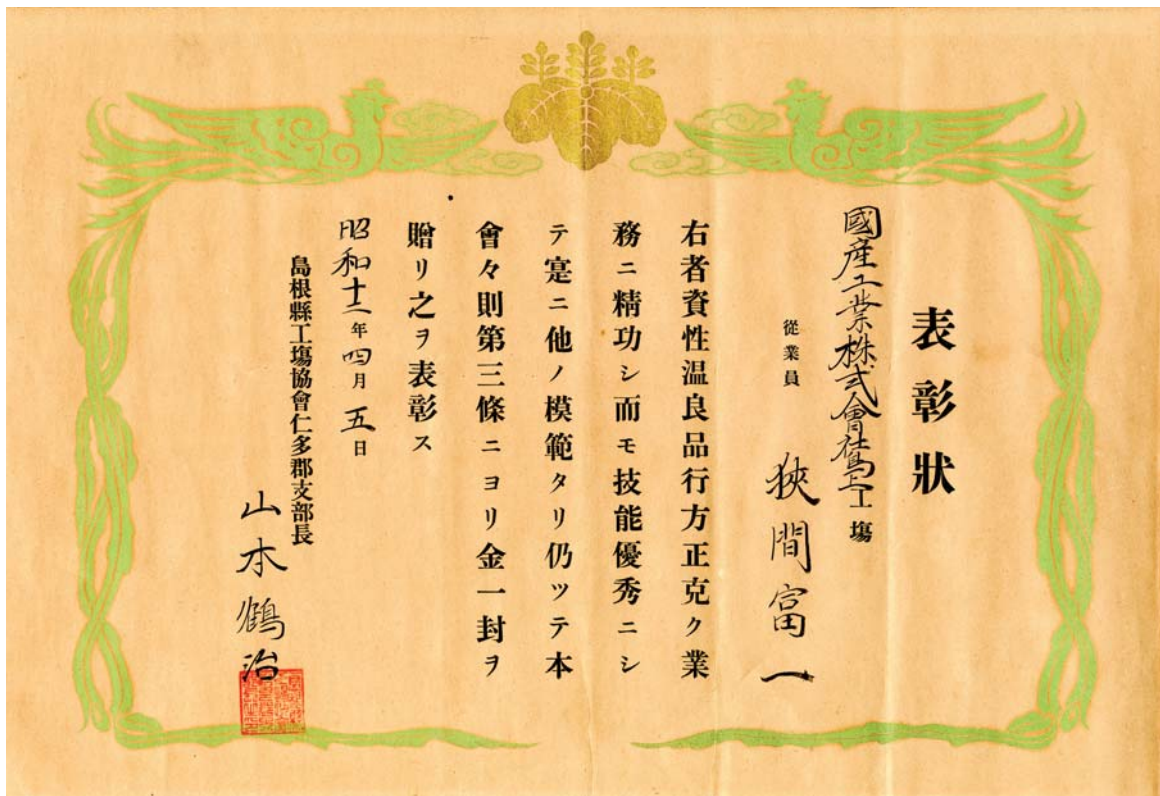 表彰狀
國産工業株式會社鳥上工場
從業員 狹間富一
右者資性温良品行方正克ク業
務ニ精功シ而モ技能優秀ニシ
テ寔ニ他ノ模範タリ仍ツテ本
會々則第三條ニヨリ金一封ヲ
贈リ之ヲ表彰ス
昭和十二年四月五日
島根縣工塲協會仁多郡支部長
山本鶴治